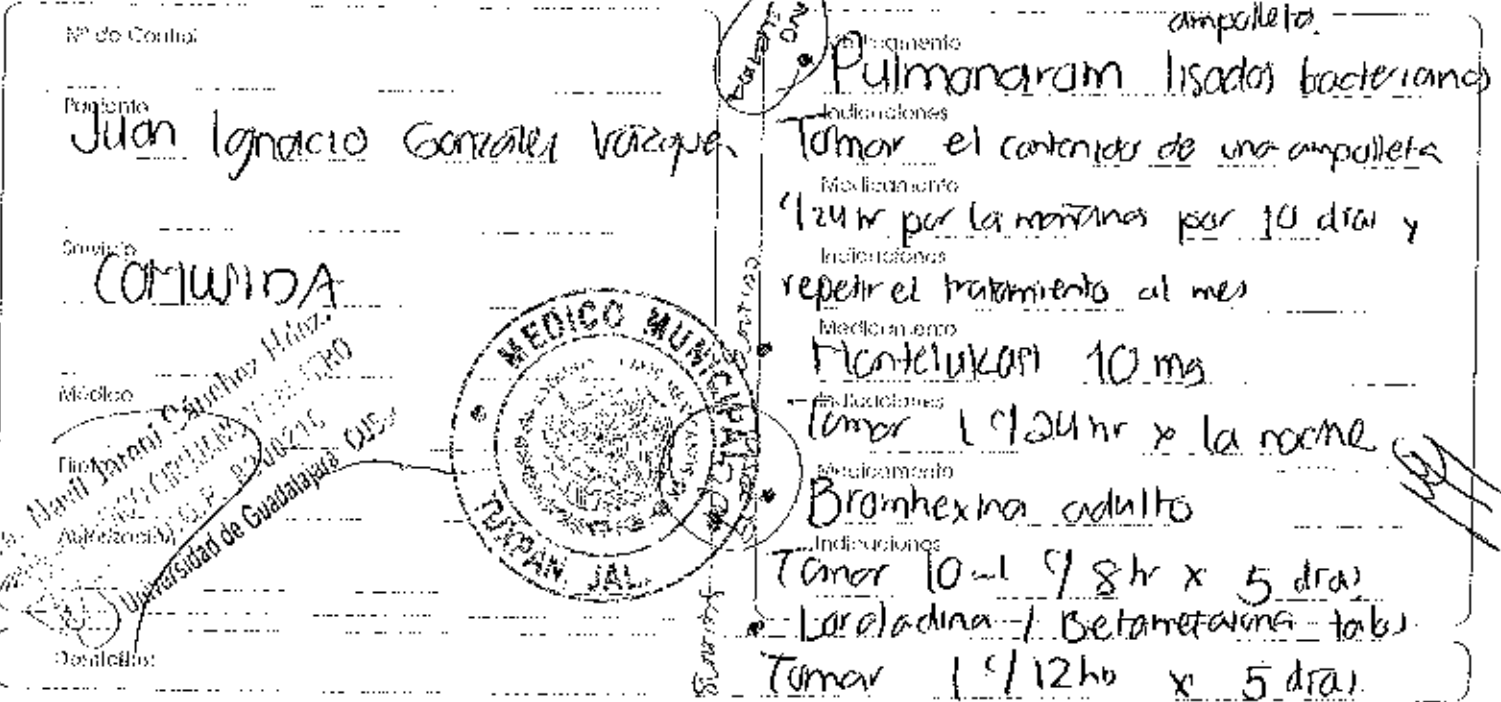 Nº de Control
Paciente
Juan Ignacio González Vázquez
Servicio
COMUNIDA
Médico
Universidad de Guadalajara
Autorización
Domicilio:
MEDICO MUNICIPAL
TUXPAN JAL.
ampolleta
Medicamento
Pulmonarom lisados bacterianos
Indicaciones
Tomar el contenido de una ampolleta
Medicamento
c/24 hr por la mañanas por 10 días y
Indicaciones
repetir el tratamiento al mes
Medicamento
Montelukast 10 mg
Indicaciones
Tomar 1 c/24 hr x la noche
Medicamento
Bromhexina adulto
Indicaciones
Tomar 10 ml c/ 8 hr x 5 días
Loratadina / Betametasona tabs
Tomar 1 c/ 12 hr x 5 días